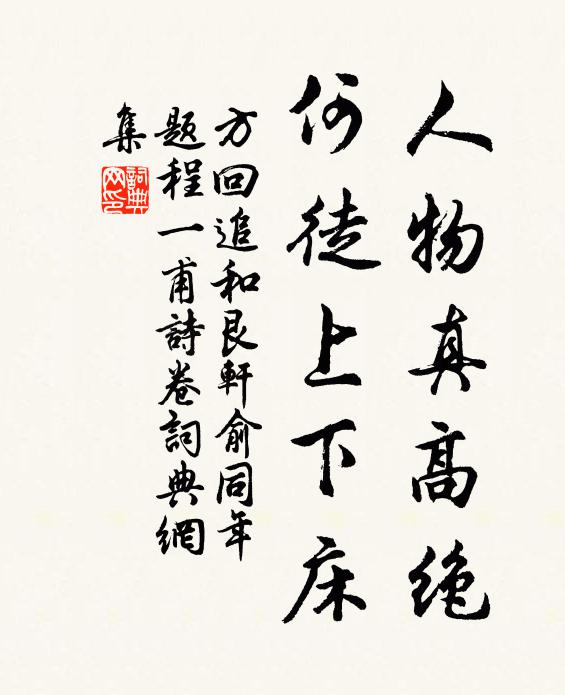 人物真高絶
何徒上下床
方回追和艮軒俞同年
題程一甫詩卷詞典網
集
詞典
网印